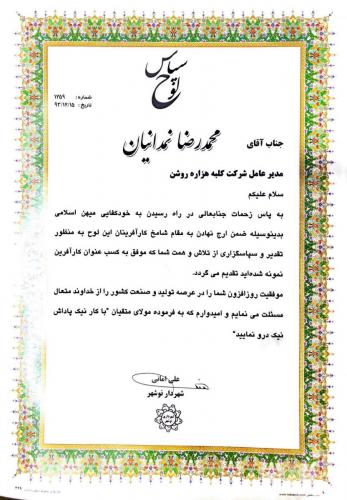 لوح سپاس
شماره: ۱۲۵۹
تاریخ: ۹۳/۱۲/۱۵
جناب آقای محمدرضا نمدانیان
مدیر عامل شرکت کلبه هزاره روشن
سلام علیکم
به پاس زحمات جنابعالی در راه رسیدن به خودکفایی میهن اسلامی
بدینوسیله ضمن ارج نهادن به مقام شامخ کارآفرینان این لوح به منظور
تقدیر و سپاسگزاری از تلاش و همت شما که موفق به کسب عنوان کارآفرین
نمونه شده‌اید تقدیم می گردد.
موفقیت روزافزون شما را در عرصه تولید و صنعت کشور را از خداوند متعال
مسئلت می نمایم و امیدوارم که به فرموده مولای متقیان "با کار نیک پاداش
نیک درو نمایید"
علی امانی
شهردار نوشهر
شهرداری
نوشهر